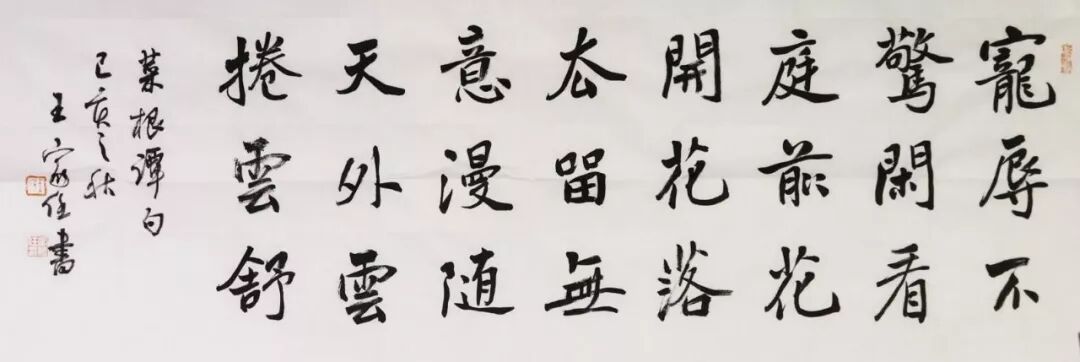 寵辱不
驚閑看
庭前花
開花落
去留無
意漫随
天外雲
捲雲舒
菜根譚句
己亥之秋
王家書